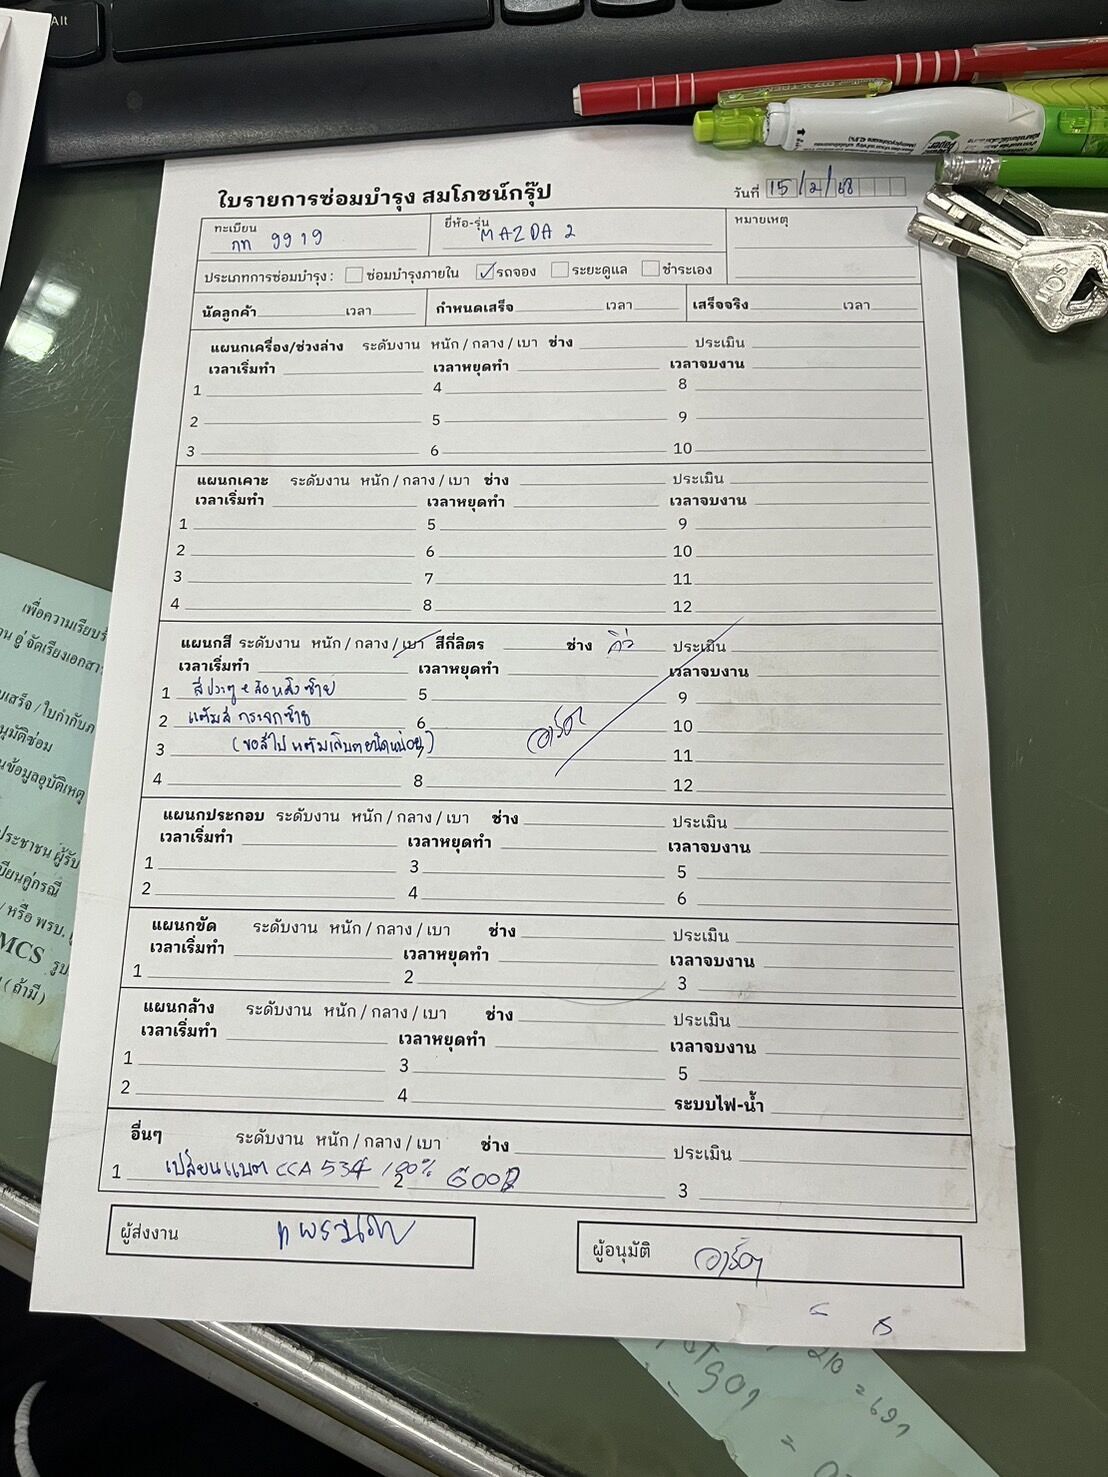 Alt
ใบรายการซ่อมบำรุง สมโภชน์กรุ๊ป
วันที่ 15/2/68
ทะเบียน กท 9919
ยี่ห้อ-รุ่น MAZDA 2
หมายเหตุ
ประเภทการซ่อมบำรุง : ซ่อมบำรุงภายใน ✓ รถจอง ระยะดูแล ชำระเอง
นัดลูกค้า เวลา กำหนดเสร็จ เวลา เสร็จจริง เวลา
แผนกเครื่อง/ช่วงล่าง ระดับงาน หนัก / กลาง / เบา ช่าง ประเมิน
เวลาเริ่มทำ เวลาหยุดทำ เวลาจบงาน
1 4 8
2 5 9
3 6 10
แผนกเคาะ ระดับงาน หนัก / กลาง / เบา ช่าง ประเมิน
เวลาเริ่มทำ เวลาหยุดทำ เวลาจบงาน
1 5 9
2 6 10
3 7 11
4 8 12
แผนกสี ระดับงาน หนัก / กลาง / เบา สีกี่ลิตร ช่าง กิว ประเมิน
เวลาเริ่มทำ เวลาหยุดทำ เวลาจบงาน
1 สีประตู + ล้อหลังซ้าย 5 9
2 แต้มสี กระจกซ้าย 6 10
3 (ขอสีไปแต้มเก็บตำหนิหน่อย) 11
4 8 12
แผนกประกอบ ระดับงาน หนัก / กลาง / เบา ช่าง ประเมิน
เวลาเริ่มทำ เวลาหยุดทำ เวลาจบงาน
1 3 5
2 4 6
แผนกขัด ระดับงาน หนัก / กลาง / เบา ช่าง ประเมิน
เวลาเริ่มทำ เวลาหยุดทำ เวลาจบงาน
1 2 3
แผนกล้าง ระดับงาน หนัก / กลาง / เบา ช่าง ประเมิน
เวลาเริ่มทำ เวลาหยุดทำ เวลาจบงาน
1 3 5
2 4 ระบบไฟ-น้ำ
อื่นๆ ระดับงาน หนัก / กลาง / เบา ช่าง ประเมิน
1 เปลี่ยนแบต CCA 534 100% 2 GOOD 3
ผู้ส่งงาน
ผู้อนุมัติ
เพื่อความเรียบร้
อู่ จัดเรียงเอกสา
เสร็จ / ใบกำกับภ
นุมัติซ่อม
ข้อมูลอุบัติเหตุ
ประชาชน ผู้รับ
บียนคู่กรณี
/ หรือ พรบ.
MCS รูป
(ถ้ามี)